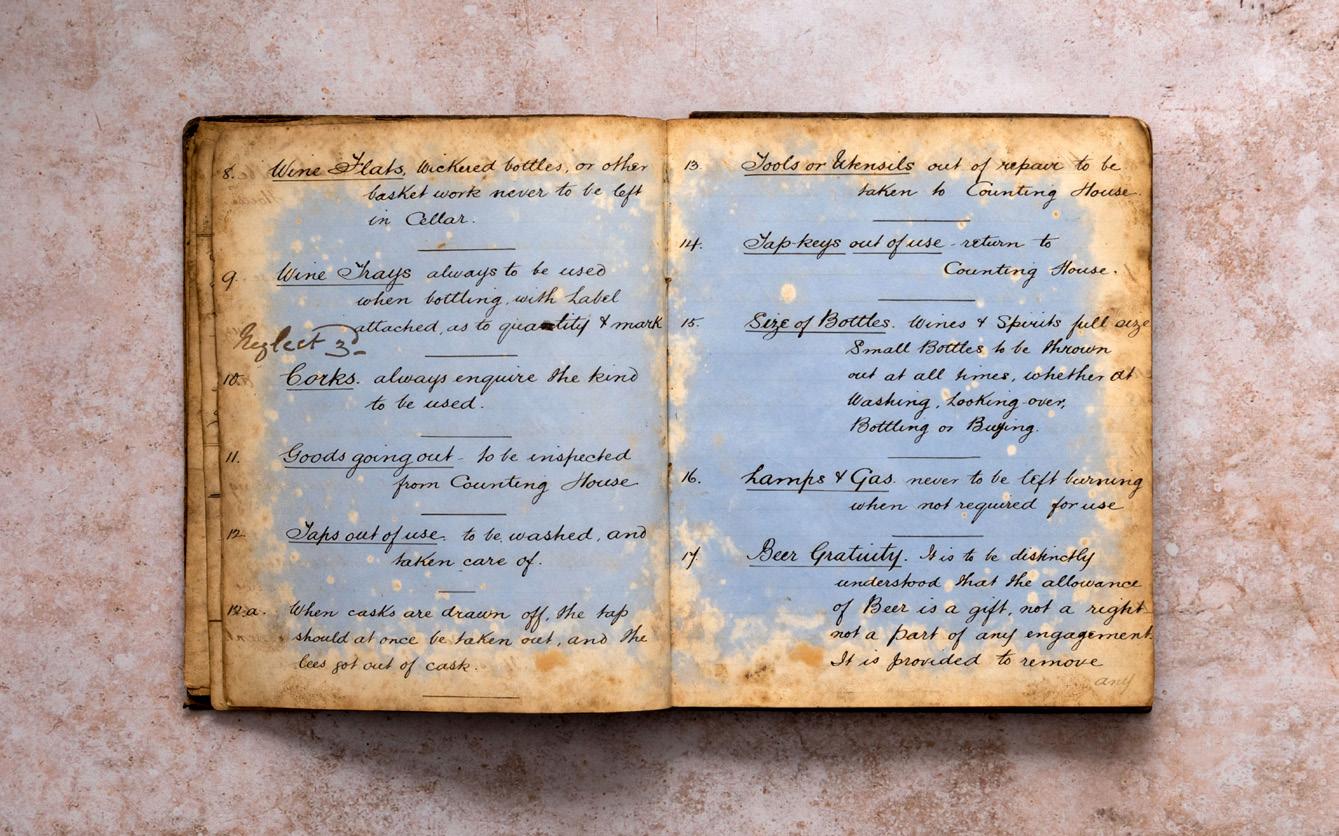 8. Wine Flats, Wickered bottles, or other
basket work never to be left
in Cellar.
9. Wine Trays always to be used
when bottling, with Label
attached, as to quantity & mark
Neglect 3d
10. Corks. always enquire the kind
to be used.
11. Goods going out - to be inspected
from Counting House
12. Taps out of use. to be washed, and
taken care of.
12.a. When casks are drawn off, the tap
should at once be taken out, and the
lees got out of cask.
13. Tools or Utensils out of repair to be
taken to Counting House.
14. Tap-keys out of use - return to
Counting House.
15. Size of Bottles. Wines & Spirits full size
Small Bottles to be thrown
out at all times, whether at
Washing, Looking-over,
Bottling or Buying.
16. Lamps & Gas. never to be left burning
when not required for use
17. Beer Gratuity. It is to be distinctly
understood that the allowance
of Beer is a gift, not a right
not a part of any engagement.
It is provided to remove
any